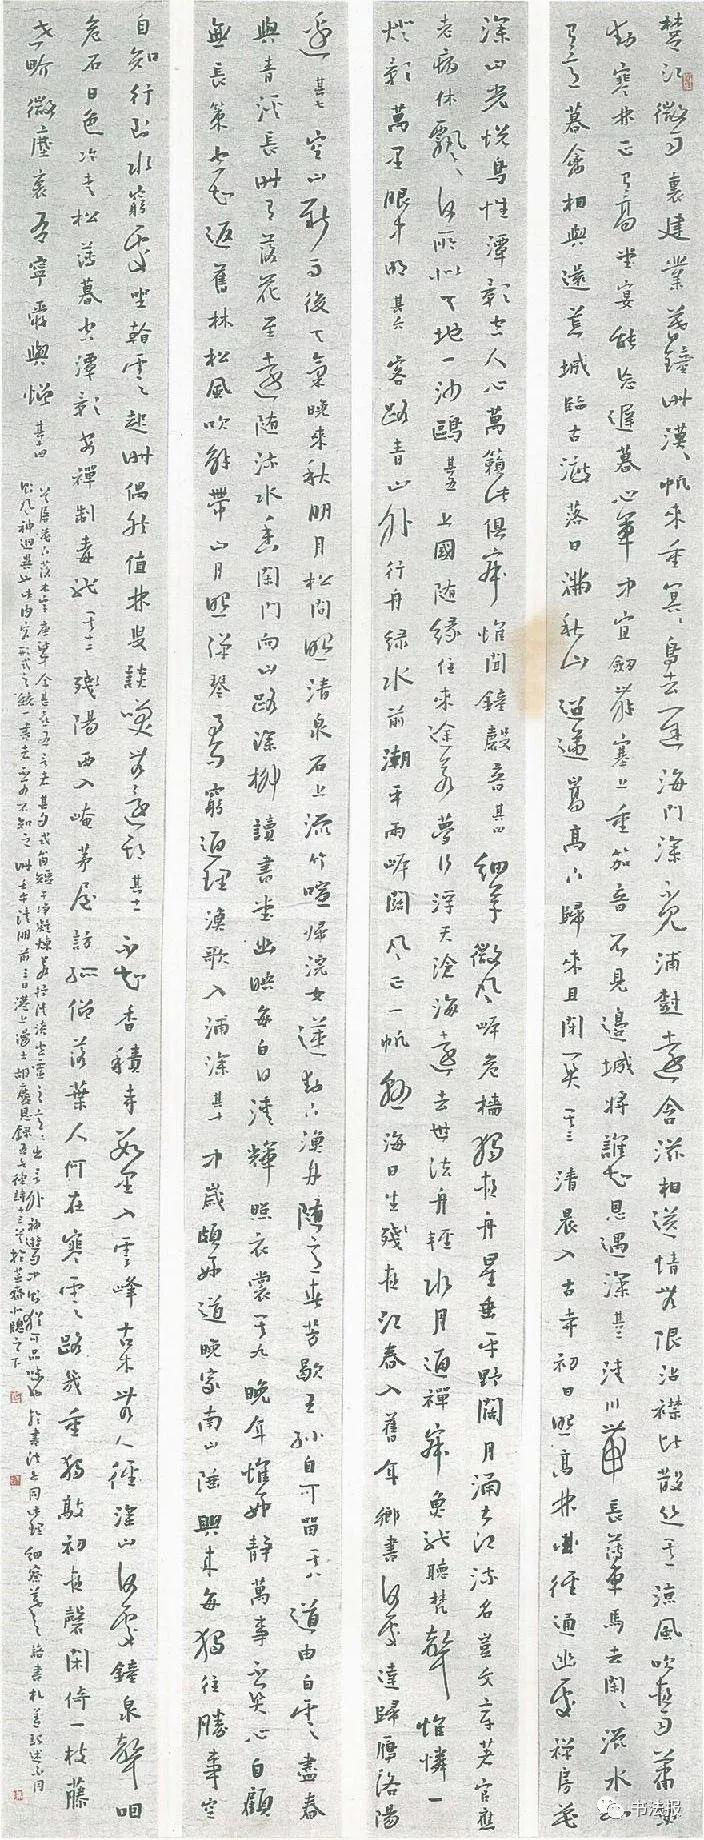 楚江微雨裏建業暮鐘時漠漠帆來重冥冥鳥去遲海門深不見浦樹遠含滋相送情無限沾襟比散絲其一涼風吹夜雨蕭瑟
動寒林正有高堂宴能忘遲暮心軍中宜劍舞塞上重笳音不見邊城將誰知恩遇深其二清川帶長薄車馬去閑閑流水如
有意暮禽相與還荒城臨古渡落日滿秋山迢遞嵩高下歸來且閉關其三清晨入古寺初日照高林曲徑通幽處禪房花
深山光悅鳥性潭影空人心萬籟此俱寂惟聞鐘磬音其四細草微風岸危檣獨夜舟星垂平野闊月湧大江流名豈文章著官應
老病休飄飄何所似天地一沙鷗其五上國隨緣住來途若夢行浮天滄海遠去世法舟輕水月通禪寂魚龍聽梵聲惟憐一
燈影萬里眼中明其六客路青山外行舟綠水前潮平兩岸闊風正一帆懸海日生殘夜江春入舊年鄉書何處達歸雁洛陽
邊其七空山新雨後天氣晚來秋明月松間照清泉石上流竹喧歸浣女蓮動下漁舟隨意春芳歇王孫自可留其八道由白雲盡春
與青溪長時有落花至遠隨流水香閑門向山路深柳讀書堂幽映每白日清輝照衣裳其九晚年惟好靜萬事不關心自顧
無長策空知返舊林松風吹解帶山月照彈琴君問窮通理漁歌入浦深其十中歲頗好道晚家南山陲興來每獨往勝事空
自知行到水窮處坐看雲起時偶然值林叟談笑無還期其十一不知香積寺數里入雲峰古木無人徑深山何處鐘泉聲咽
危石日色冷青松薄暮空潭影安禪制毒龍其十二殘陽西入崦茅屋訪孤僧落葉人何在寒雲路幾重獨敲初夜磬閑倚一枝藤
世界微塵裏吾寧愛與憎
书法报